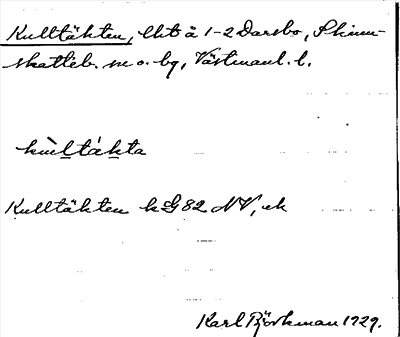 Kulltäkten, lht å 1-2 Darsbo, Skinn-
skatteb. sn o. bg, Västmanl. l.
kùltákta
Kulltäkten k G 82 NV, ek
Karl Björkman 1929.